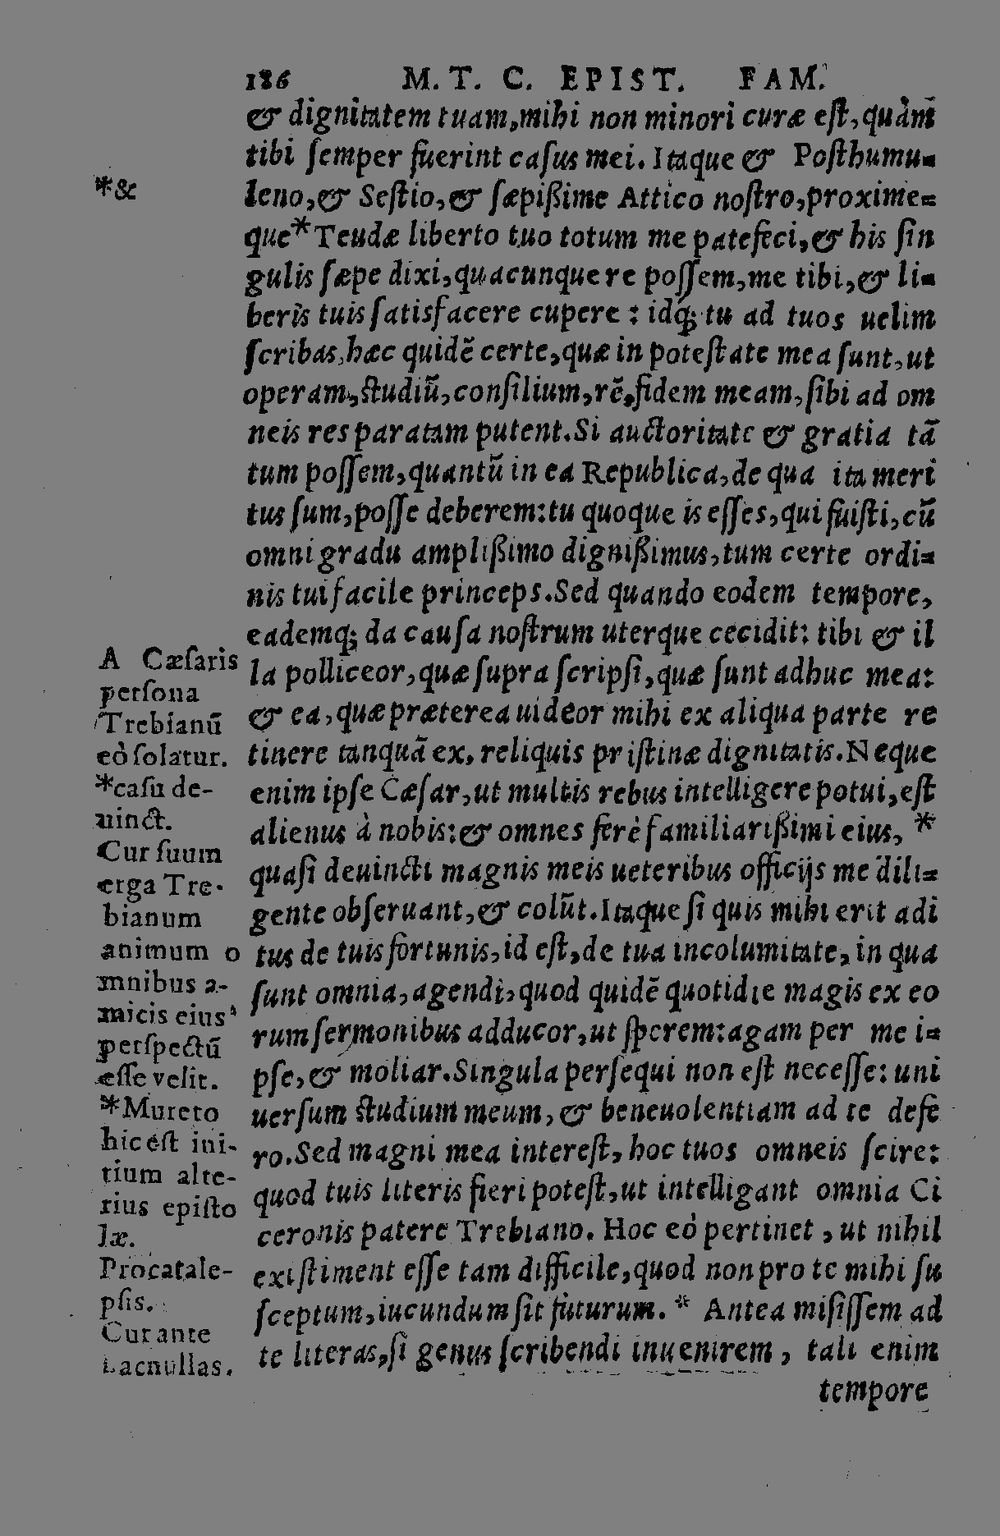 186 M. T. C. EPIST. FAM.
& dignitatem tuam, mihi non minori curæ eſt, quàm
tibi ſemper fuerint caſus mei. Itaque & Poſthumu-
leno, & Seſtio, & ſæpißime Attico noſtro, proxime-
que * Teudæ liberto tuo totum me patefeci, & his ſin
gulis ſæpe dixi, quacunque re poſſem, me tibi, & li-
beris tuis ſatisfacere cupere: idq; tu ad tuos uelim
ſcribas, hæc quidē certe, quæ in poteſtate mea ſunt, ut
operam, ſtudiū, conſilium, rē, fidem meam, ſibi ad om
neis res paratam putent. Si auctoritate & gratia tā
tum poſſem, quantū in ea Republica, de qua ita meri
tus ſum, poſſe deberem: tu quoque is eſſes, qui fuiſti, cū
omni gradu amplißimo dignißimus, tum certe ordi-
nis tui facile princeps. Sed quando eodem tempore,
eademq; da cauſa noſtrum uterque cecidit: tibi & il
la polliceor, quæ ſupra ſcripſi, quæ ſunt adhuc mea:
& ea, quæ præterea uideor mihi ex aliqua parte re
tinere tanquā ex, reliquis priſtinæ dignitatis. Neque
enim ipſe Cæſar, ut multis rebus intelligere potui, eſt
alienus à nobis: & omnes ferè familiarißimi eius, *
quaſi deuincti magnis meis ueteribus officijs me dili-
gente obſeruant, & colūt. Itaque ſi quis mihi erit adi
tus de tuis fortunis, id eſt, de tua incolumitate, in qua
ſunt omnia, agendi, quod quidē quotidie magis ex eo
rum ſermonibus adducor, ut ſperem: agam per me i-
pſe, & moliar. Singula perſequi non eſt neceſſe: uni
uerſum ſtudium meum, & beneuolentiam ad te defe
ro. Sed magni mea intereſt, hoc tuos omneis ſcire:
quod tuis literis fieri poteſt, ut intelligant omnia Ci
ceronis patere Trebiano. Hoc eò pertinet, ut nihil
exiſtiment eſſe tam difficile, quod non pro te mihi ſu
ſceptum, iucundum ſit futurum. * Antea miſiſſem ad
te literas, ſi genus ſcribendi inuenirem, tali enim
tempore
*&
A Cæſaris
perſona
Trebianū
eò ſolatur.
*caſu de-
uinct.
Cur ſuum
erga Tre-
bianum
animum o
mnibus a-
micis eius
perſpectū
eſſe velit.
*Mureto
hic eſt ini-
tium alte-
rius epiſto
læ.
Procatale-
pſis.
Cur ante
hac nullas.